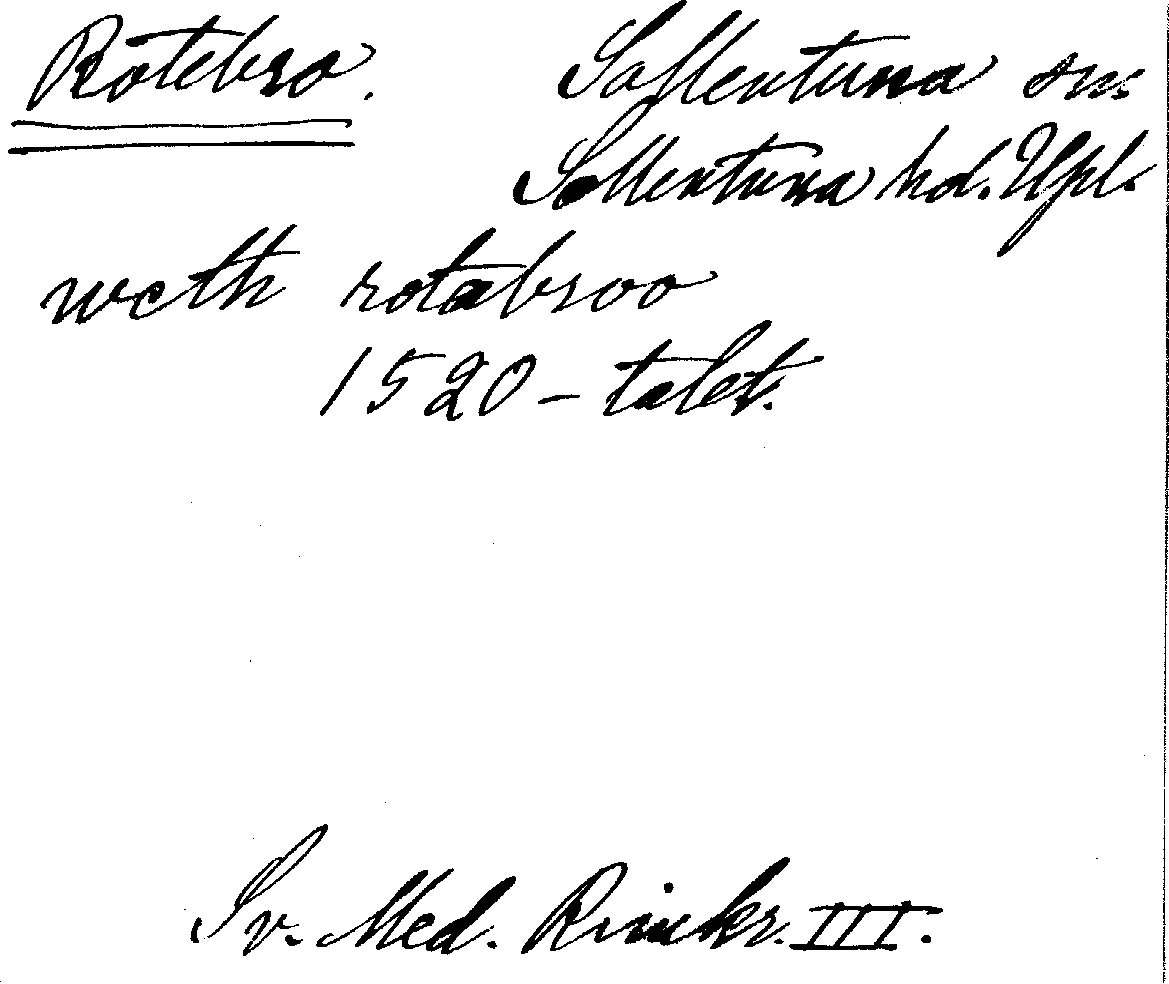 Rotebro. Sollentuna sn:
Sollentuna hd. Upl.
weth rotabroo
1520-talet.
Sv. Med. Rimkr. III.